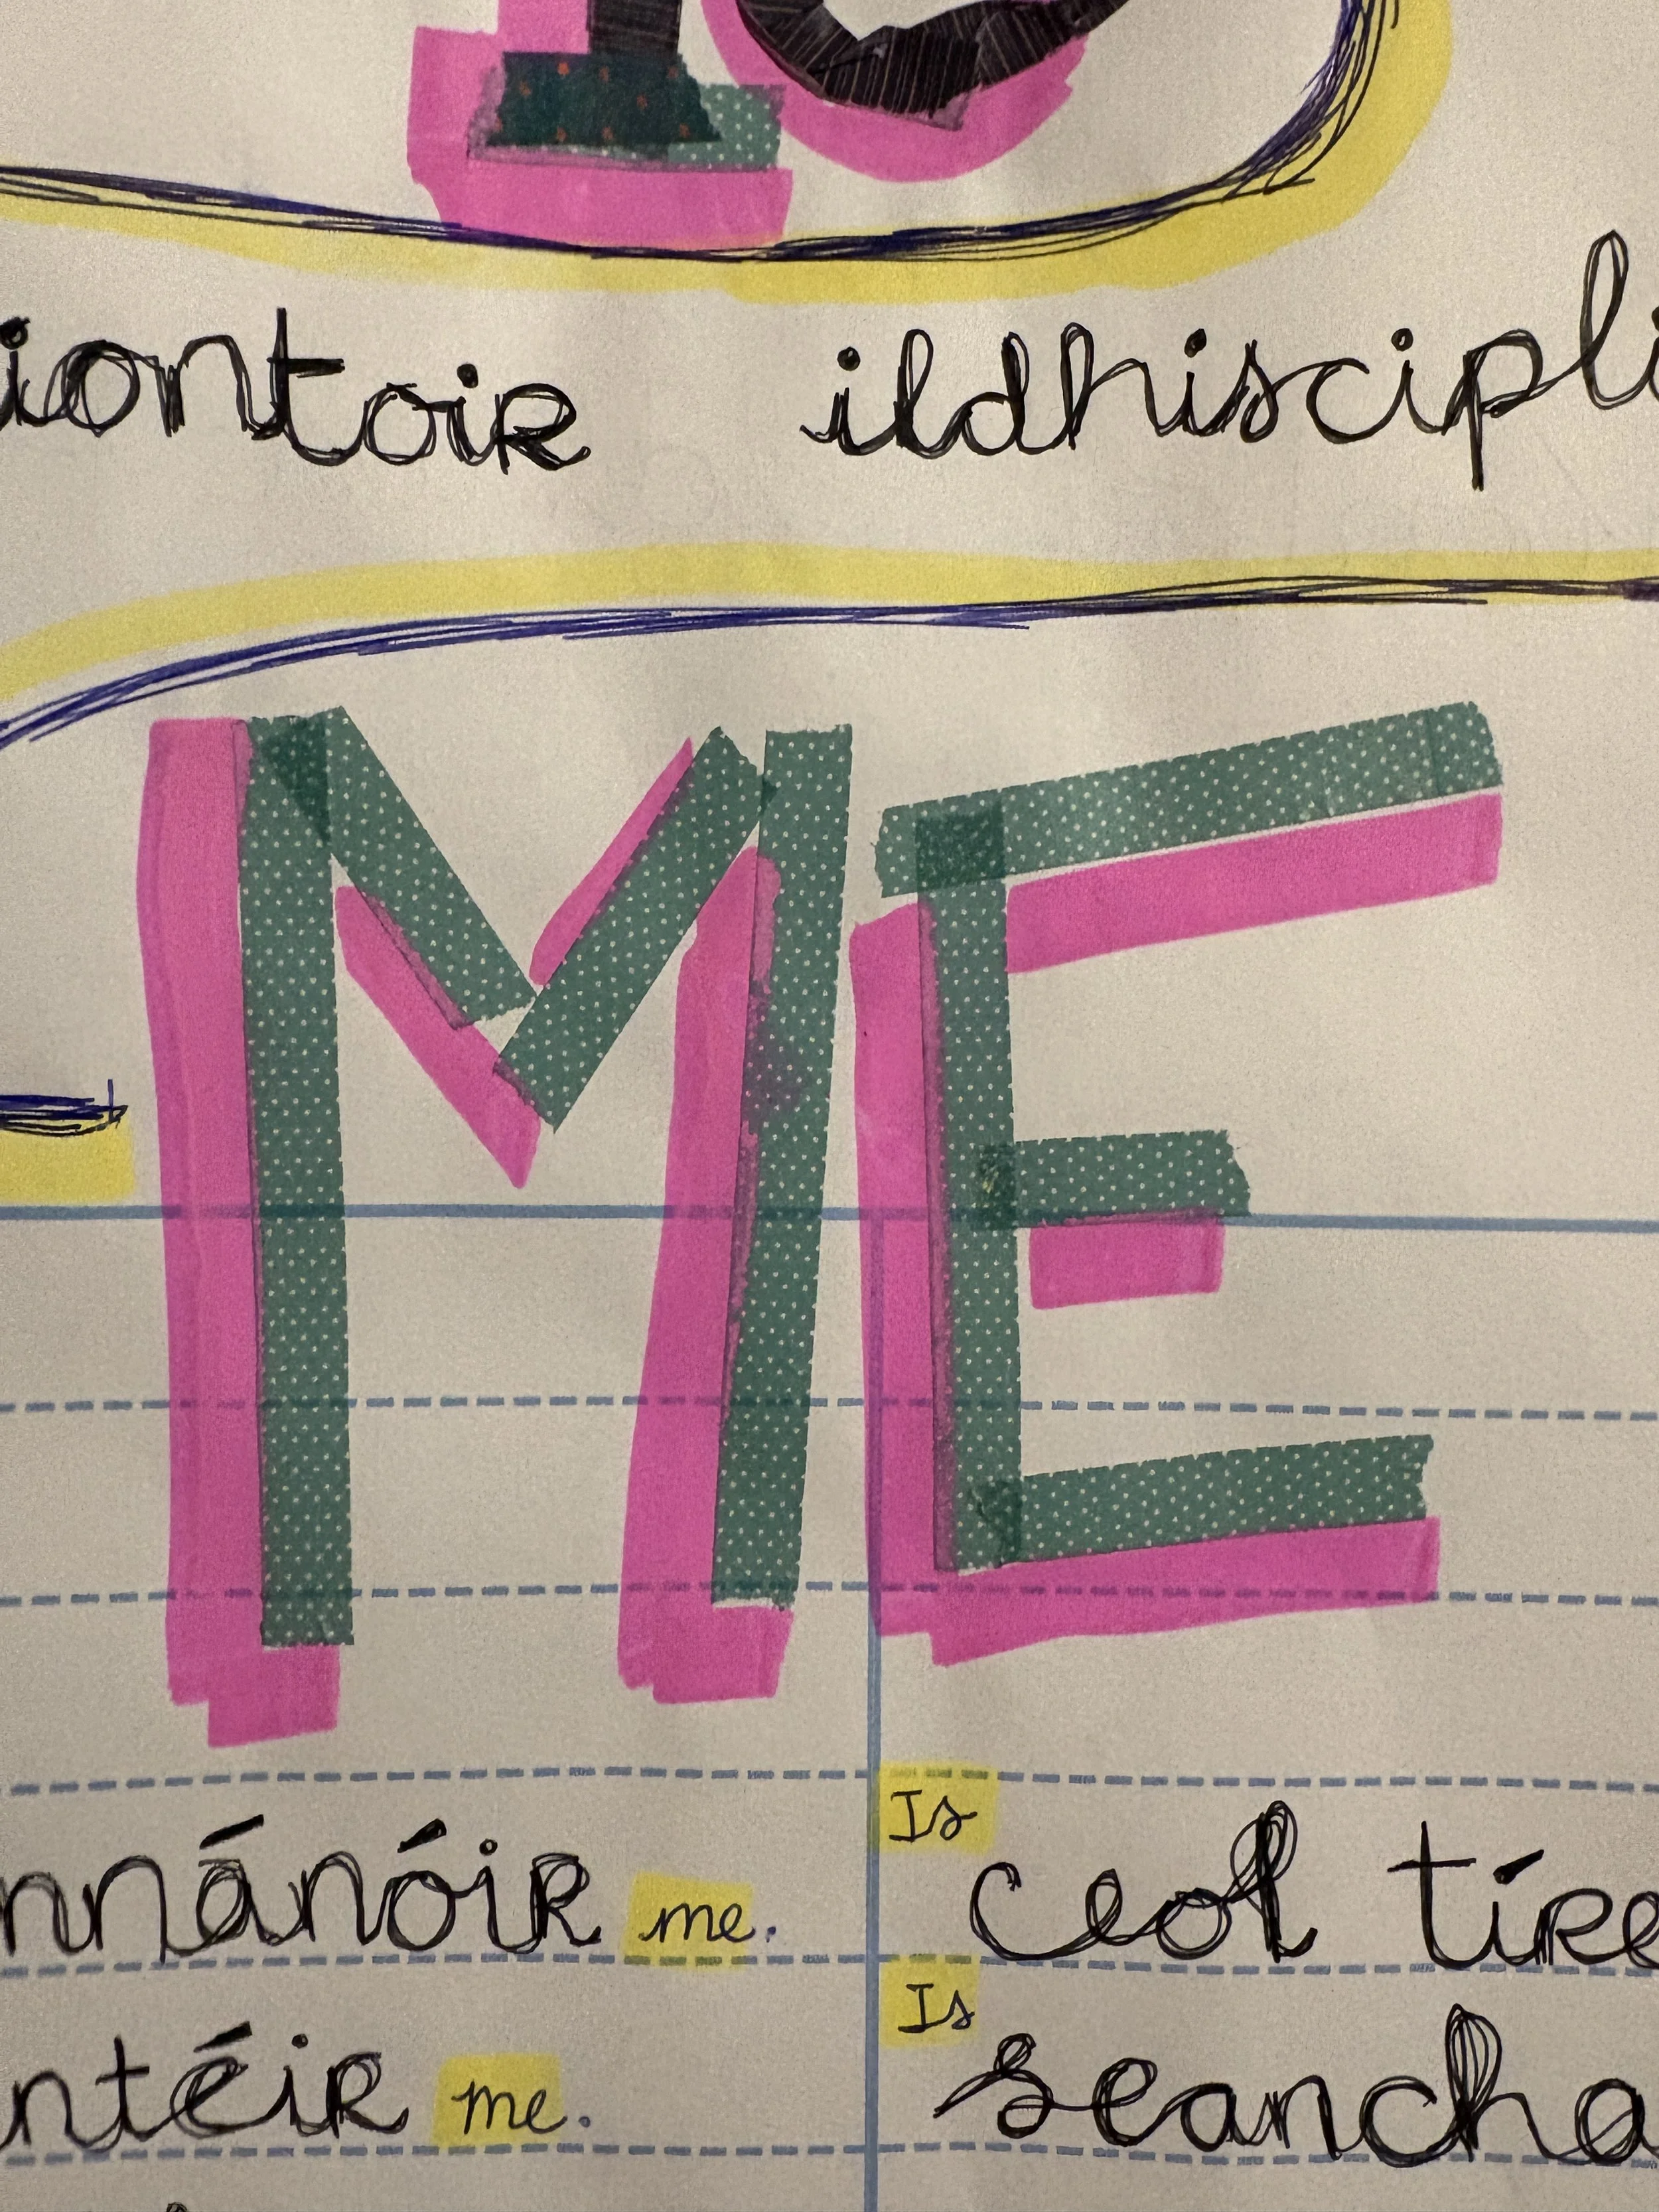 iontoir ildhiscipli
ME
nnánóir me. Is ceol tíre
ntéir me. Is seancha